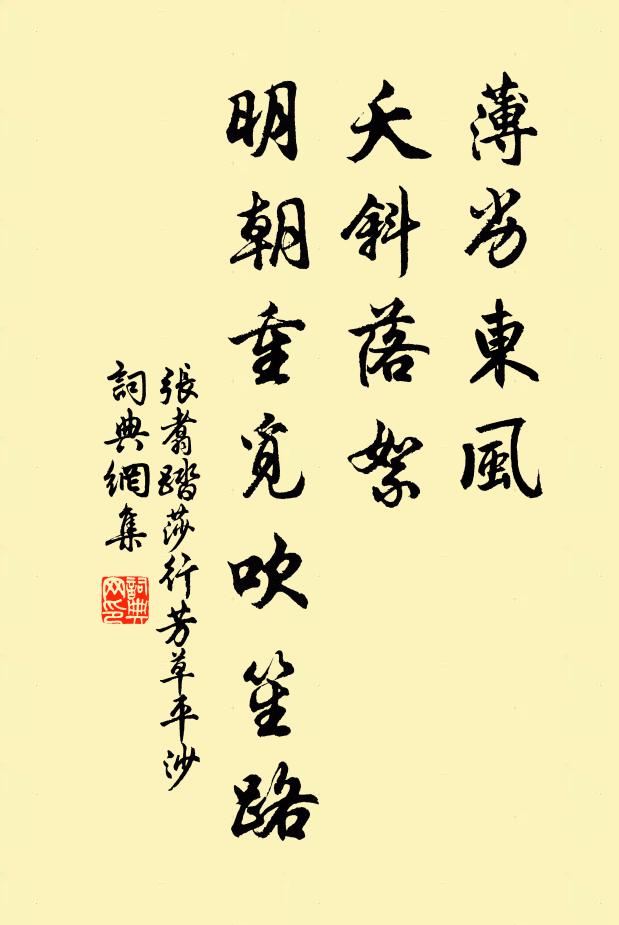 薄劣東風
夭斜落絮
明朝重覓吹笙路
張翥踏莎行芳草平沙
詞典網集
詞典網印